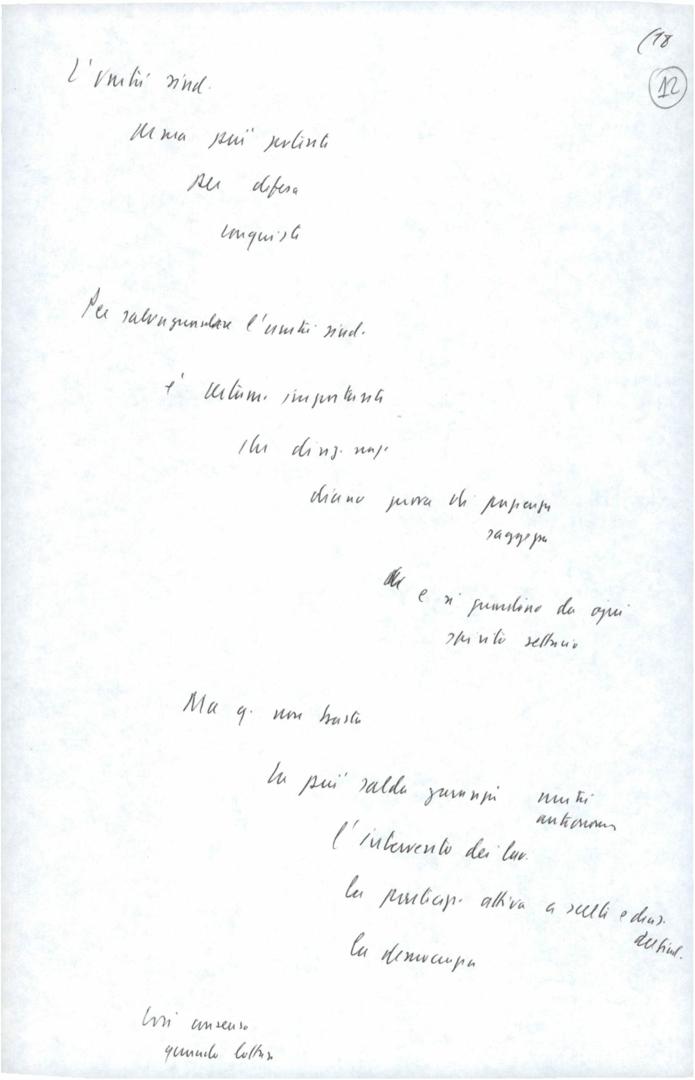 (18
12
L'unità sind.
arma più potente
per difesa
conquiste
Per salvaguardare l'unità sind.
e' import.
che
diano prova di pazienza
saggezza
e si guardino da ogni
spirito settario
Ma q. non basta
La più salda garanzia unità
autonomia
l'intervento dei lav.
la partecip. attiva a scelte e
la democrazia
Così consenso
quando lotta